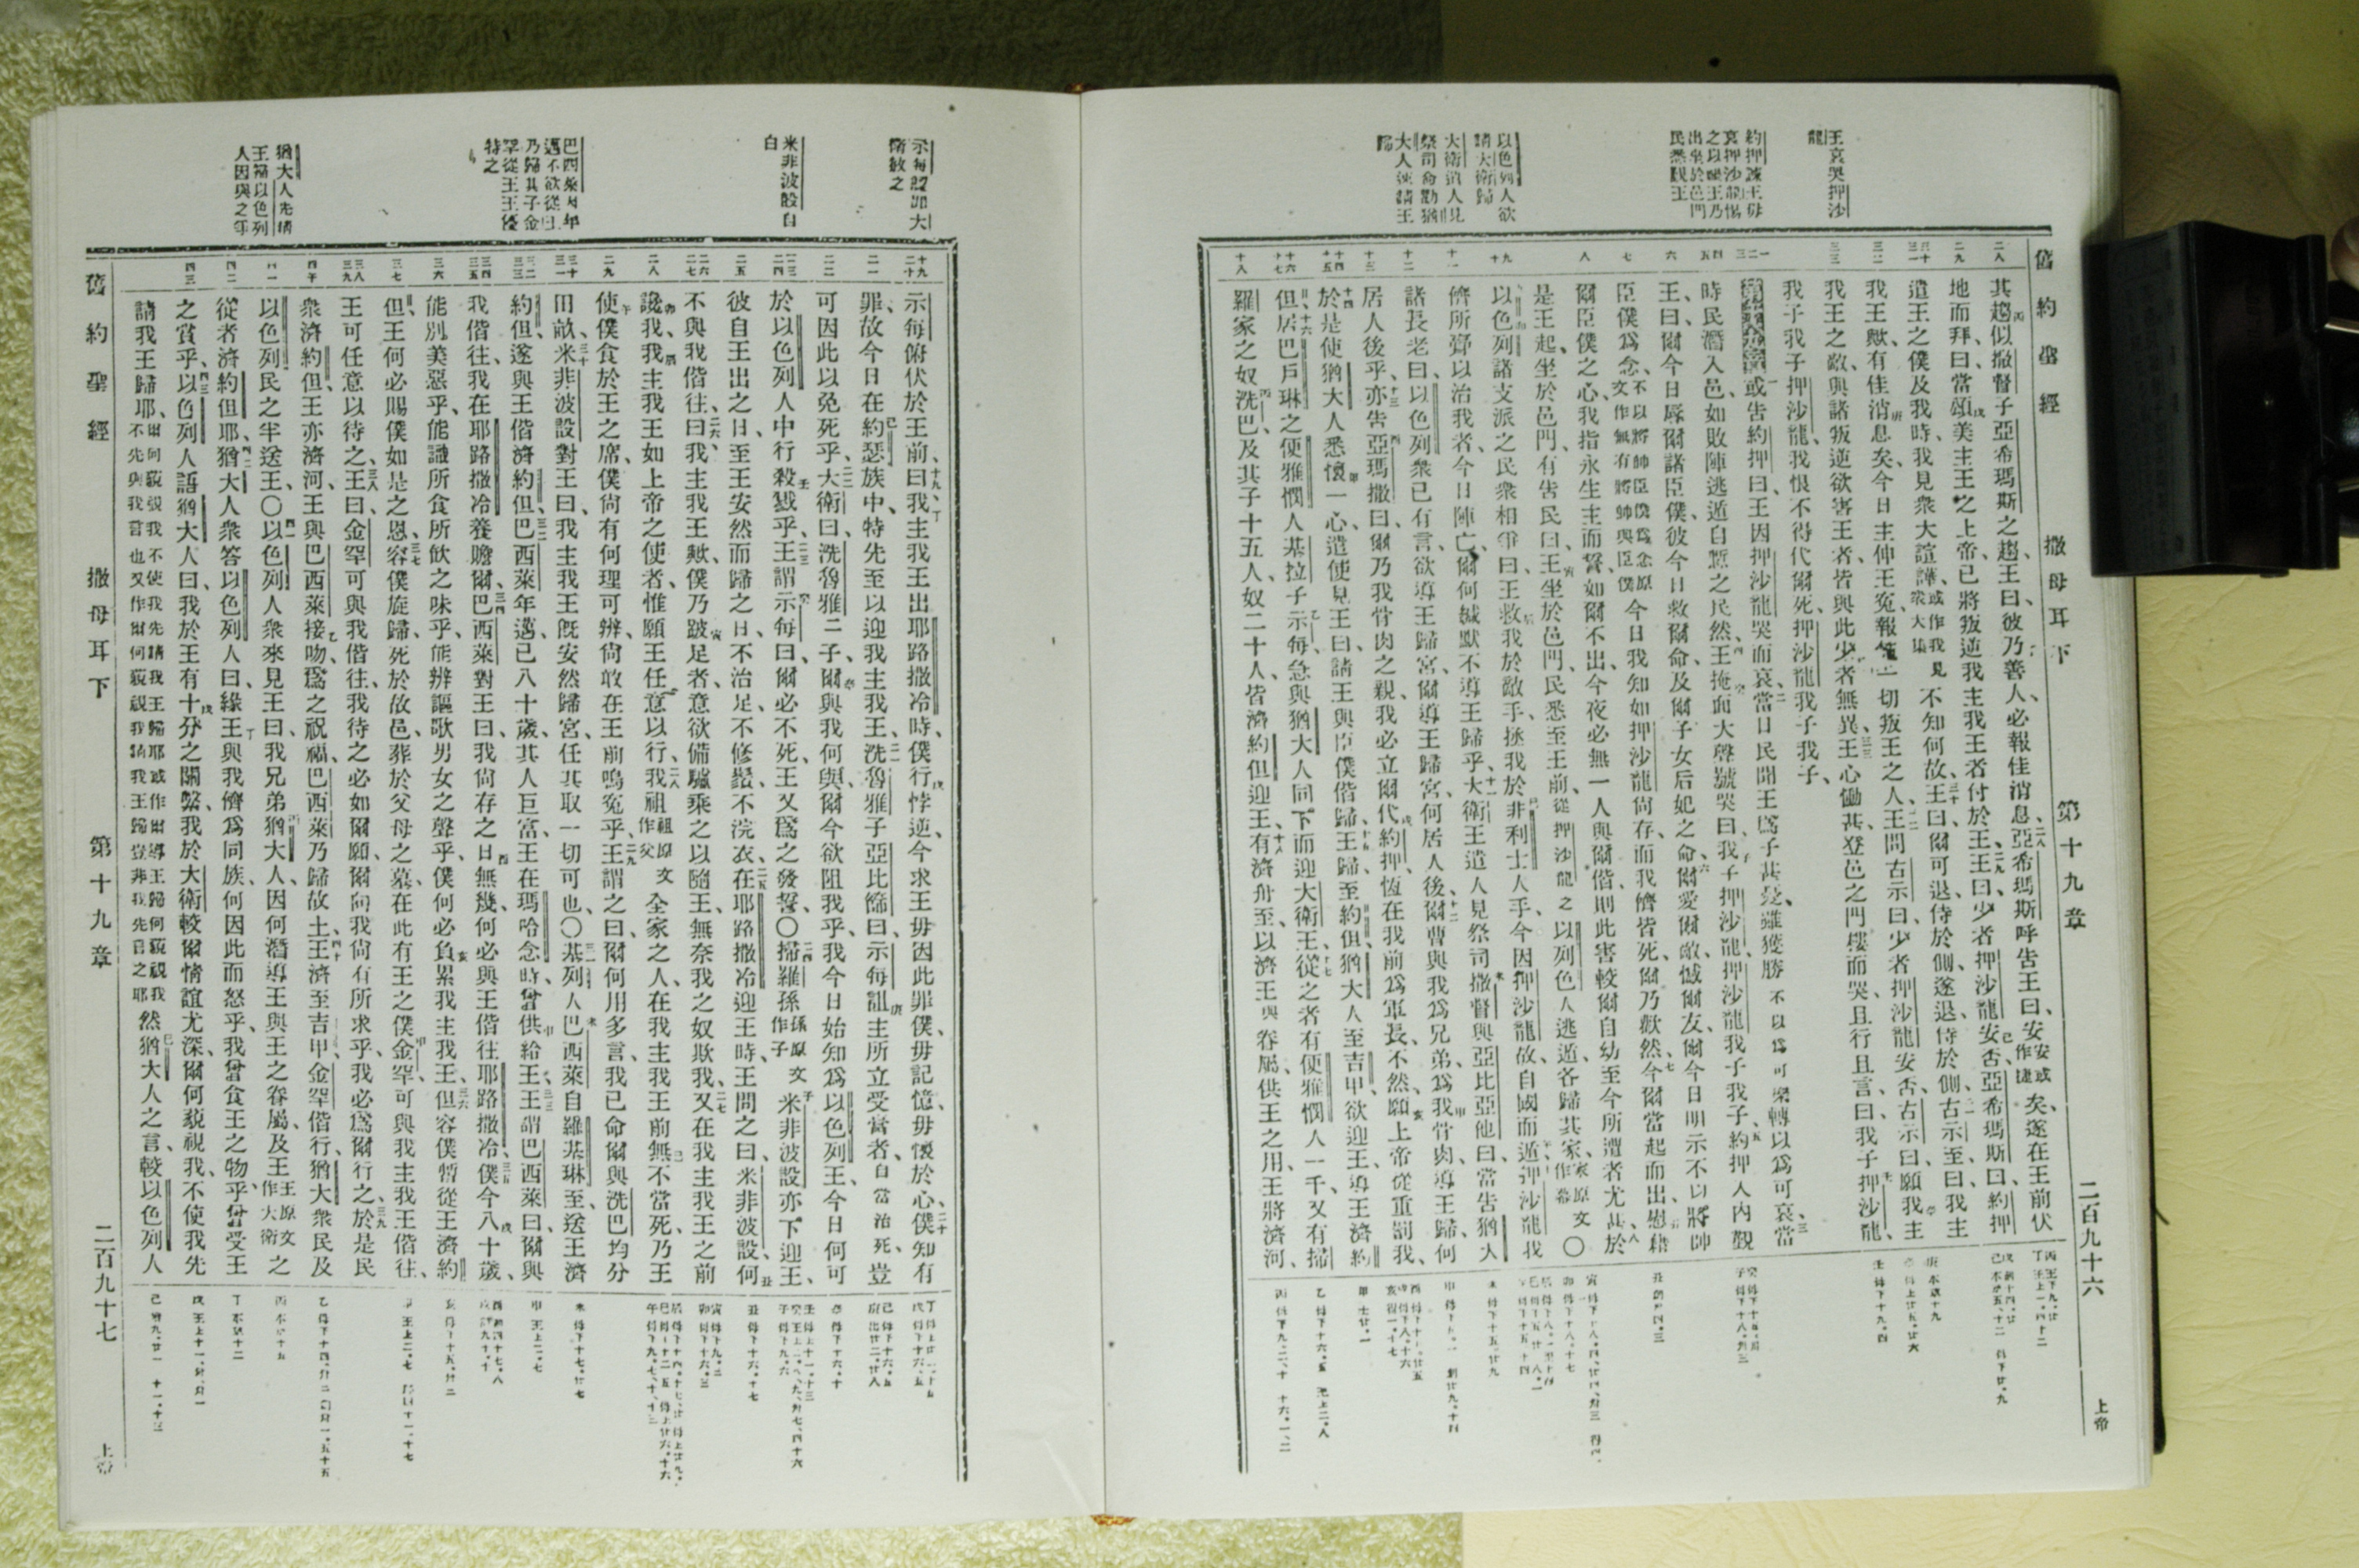 舊約聖經 撒母耳下 第十九章 二百九十六 上帝
王哀哭押沙龍
約押諫王毋
哀押沙龍惕
之以難王乃
出坐於邑門
民悉覲王
以色列人欲
請大衛歸
大衛遣人見
祭司命勸猶
大人速請王
歸
其趨似撒督子亞希瑪斯之趨、王曰、彼乃善人、必報佳消息、亞希瑪斯呼告王曰、安安或作遽矣、遂在王前伏
地而拜曰、當頌美主王之上帝、已將叛逆我主我王者付於王、王曰、少者押沙龍安否、亞希瑪斯曰、約押
遣王之僕及我時、我見衆大諠譁、或作我見衆大集不知何故、王曰、爾可退、侍於側、遂退、侍於側、古示至曰、我主
我王歟、有佳消息矣、今日主伸王冤、報一切叛王之人、王問古示曰、少者押沙龍安否、古示曰、願我主
我王之敵、與諸叛逆欲害王者、皆與此少者無異、王心慟甚、登邑之門樓而哭、且行且言、曰、我子押沙龍、
我子我子押沙龍、我恨不得代爾死、押沙龍我子我子、
第十九章 或告約押曰、王因押沙龍哭而哀、當日民聞王爲子甚憂、雖獲勝不以爲可樂轉以爲可哀、當
時民潛入邑、如敗陣逃遁自慙之民然、王掩面大聲號哭曰、我子押沙龍、押沙龍我子我子、約押入內覲
王、曰、爾今日辱爾諸臣僕、彼今日救爾命、及爾子女后妃之命、爾愛爾敵、憾爾友、爾今日明示不以將帥
臣僕爲念、不以將帥臣僕爲念原文作無有將帥與臣僕今日我知如押沙龍尚存、而我儕皆死、爾乃歡然、今爾當起而出、慰藉
爾臣僕之心、我指永生主而誓、如爾不出、今夜必無一人與爾偕、則此害較爾自幼至今所遭者尤甚、於
是王起、坐於邑門、有告民曰、王坐於邑門、民悉至王前、從押沙龍之以列色人逃遁、各歸其家、家原文作幕〇
以色列諸支派之民衆相爭曰、王救我於敵手、拯我於非利士人手、今因押沙龍故、自國而遁、押沙龍我
儕所膏以治我者、今日陣亡、爾何緘默不導王歸乎、大衛王遣人見祭司撒督與亞比亞他曰、當告猶大
諸長老曰、以色列衆已有言、欲導王歸宮、爾導王歸宮、何居人後、爾曹與我爲兄弟、爲我骨肉、導王歸、何
居人後乎、亦告亞瑪撒曰、爾乃我骨肉之親、我必立爾代約押、恆在我前爲軍長、不然、願上帝從重罰我、
於是使猶大人悉懷一心、遣使見王曰、請王與臣僕偕歸、王歸至約但、猶大人至吉甲、欲迎王、導王濟約
但、居巴戶琳之便雅憫人基拉子示每、急與猶大人同下而迎大衛王、從之者有便雅憫人一千、又有掃
羅家之奴洗巴、及其子十五人、奴二十人、皆濟約但迎王、有濟舟至、以濟王與眷屬、供王之用、王將濟河、
示每認罪大
衛赦之
米非波設自
白
巴西萊因年
邁不欲從王
乃歸其子金
罕從王王優
待之
猶大人先請
王歸以色列
人因與之爭
示每俯伏於王前曰、我主我王出耶路撒冷時、僕行悖逆、今求王毋因此罪僕、毋記憶、毋懷於心、僕知有
罪、故今日在約瑟族中、特先至以迎我主我王、洗魯雅子亞比篩曰、示每詛主所立受膏者、自當治死、豈
可因此以免死乎、大衛曰、洗魯雅二子、爾與我何與、爾今欲阻我乎、我今日始知爲以色列王、今日何可
於以色列人中行殺戮乎、王謂示每曰、爾必不死、王又爲之發誓、〇掃羅孫孫原文作子米非波設亦下迎王、
彼自王出之日、至王安然而歸之日、不治足、不修鬚、不浣衣、在耶路撒冷迎王時、王問之曰、米非波設、何
不與我偕往、曰、我主我王歟、僕乃跛足者、意欲備驢乘之以隨王、無奈我之奴欺我、又在我主我王之前
讒我、我主我王如上帝之使者、惟願王任意以行、我祖祖原文作父全家之人、在我主我王前無不當死、乃王
使僕食於王之席、僕尚有何理可辨、尚敢在王前鳴冤乎、王謂之曰、爾何用多言、我已命爾與洗巴均分
田畝、米非波設對王曰、我主我王既安然歸宮、任其取一切可也、〇基列人巴西萊自羅基琳至、送王濟
約但、遂與王偕濟約但、巴西萊年邁、已八十歲、其人巨富、王在瑪哈念時、曾供給王、王謂巴西萊曰、爾與
我偕往、我在耶路撒冷養贍爾、巴西萊對王曰、我尚存之日無幾、何必與王偕往耶路撒冷、僕今八十歲、
能別美惡乎、能識所食所飲之味乎、能辨謳歌男女之聲乎、僕何必負累我主我王、但容僕暫從王濟約
但、王何必賜僕如是之恩、容僕旋歸、死於故邑、葬於父母之墓、在此有王之僕金罕、可與我主我王偕往、
王可任意以待之、王曰、金罕可與我偕往、我待之必如爾願、爾向我尚有所求乎、我必爲爾行之、於是民
衆濟約但、王亦濟河、王與巴西萊接吻、爲之祝福、巴西萊乃歸故土、王濟至吉甲、金罕偕行、猶大衆民及
以色列民之半送王、〇以色列人衆來見王曰、我兄弟猶大人、因何潛導王與王之眷屬、及王王原文作大衛之
從者濟約但耶、猶大人衆答以色列人曰、緣王與我儕爲同族、何因此而怒乎、我曾食王之物乎、曾受王
之賞乎、以色列人語猶大人曰、我於王有十分之關繫、我於大衛較爾情誼尤深、爾何藐視我、不使我先
請我王歸耶、爾何藐視我不使我先請我王歸耶或作爾導王歸何藐視我不先與我言也又作爾何藐視我請我王歸豈非我先言之耶然猶大人之言、較以色列人
舊約聖經 撒母耳下 第十九章 二百九十七 上帝